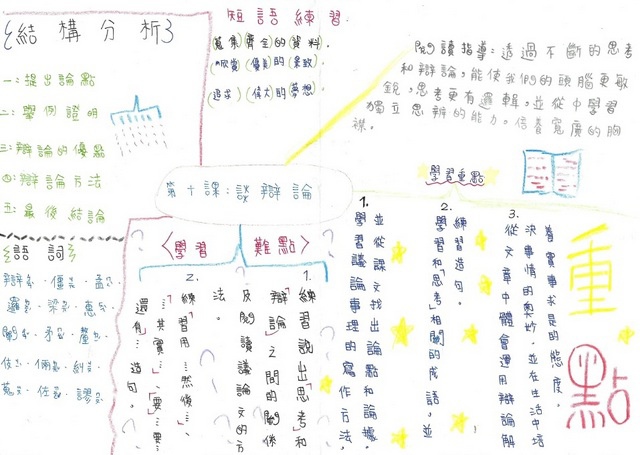 結構分析
一:提出論點
二:舉例證明
三:辯論的優點
四:辯論方法
五:最後結論
語詞
短語練習
蒐集(齊全)的(資料).
(欣賞)(優美)的(景致)
(追求)(偉大)的(夢想)
閱讀指導:透過不斷的思考
和辯論,能使我們的頭腦更敏
銳,思考更有邏輯,並從中學習
獨立思辨的能力,培養寬廣的胸
襟。
第十課:談辯論
學習重點
1.
並從課文找出論點和論據。
學習議論事理的寫作方法,
2.
練習造句。
學習和「思考」相關的成語,並
3.
養實事求是的態度。
決事情的奧妙,並在生活中培
從文章中體會運用辯論解
重點
〈學習難點〉
1.
練習說出「思考和
辯論」之間的關係
及閱讀議論文的方
法。
2.
練習用「…然後…
…其實……要……
還有…」造句。